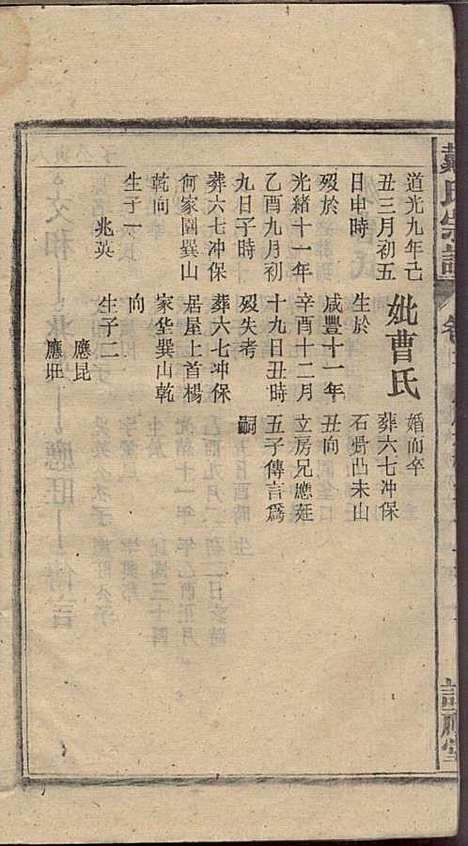 戴氏宗譜
卷
道光九年己
丑三月初五
日申時
歿於
光緒十一年
乙酉九月初
九日子時
葬六七冲保
何家園巽山
乾向
生子一
兆英
妣曹氏
生於
咸豐十一年
辛酉十二月
十九日丑時
歿失考
葬六七冲保
居屋上首楊
家华巽山乾
向
生子二
應昆
應旺
婚而卒
葬六七冲保
石凸未山
丑向
立房兄應
五子傳言爲
嗣